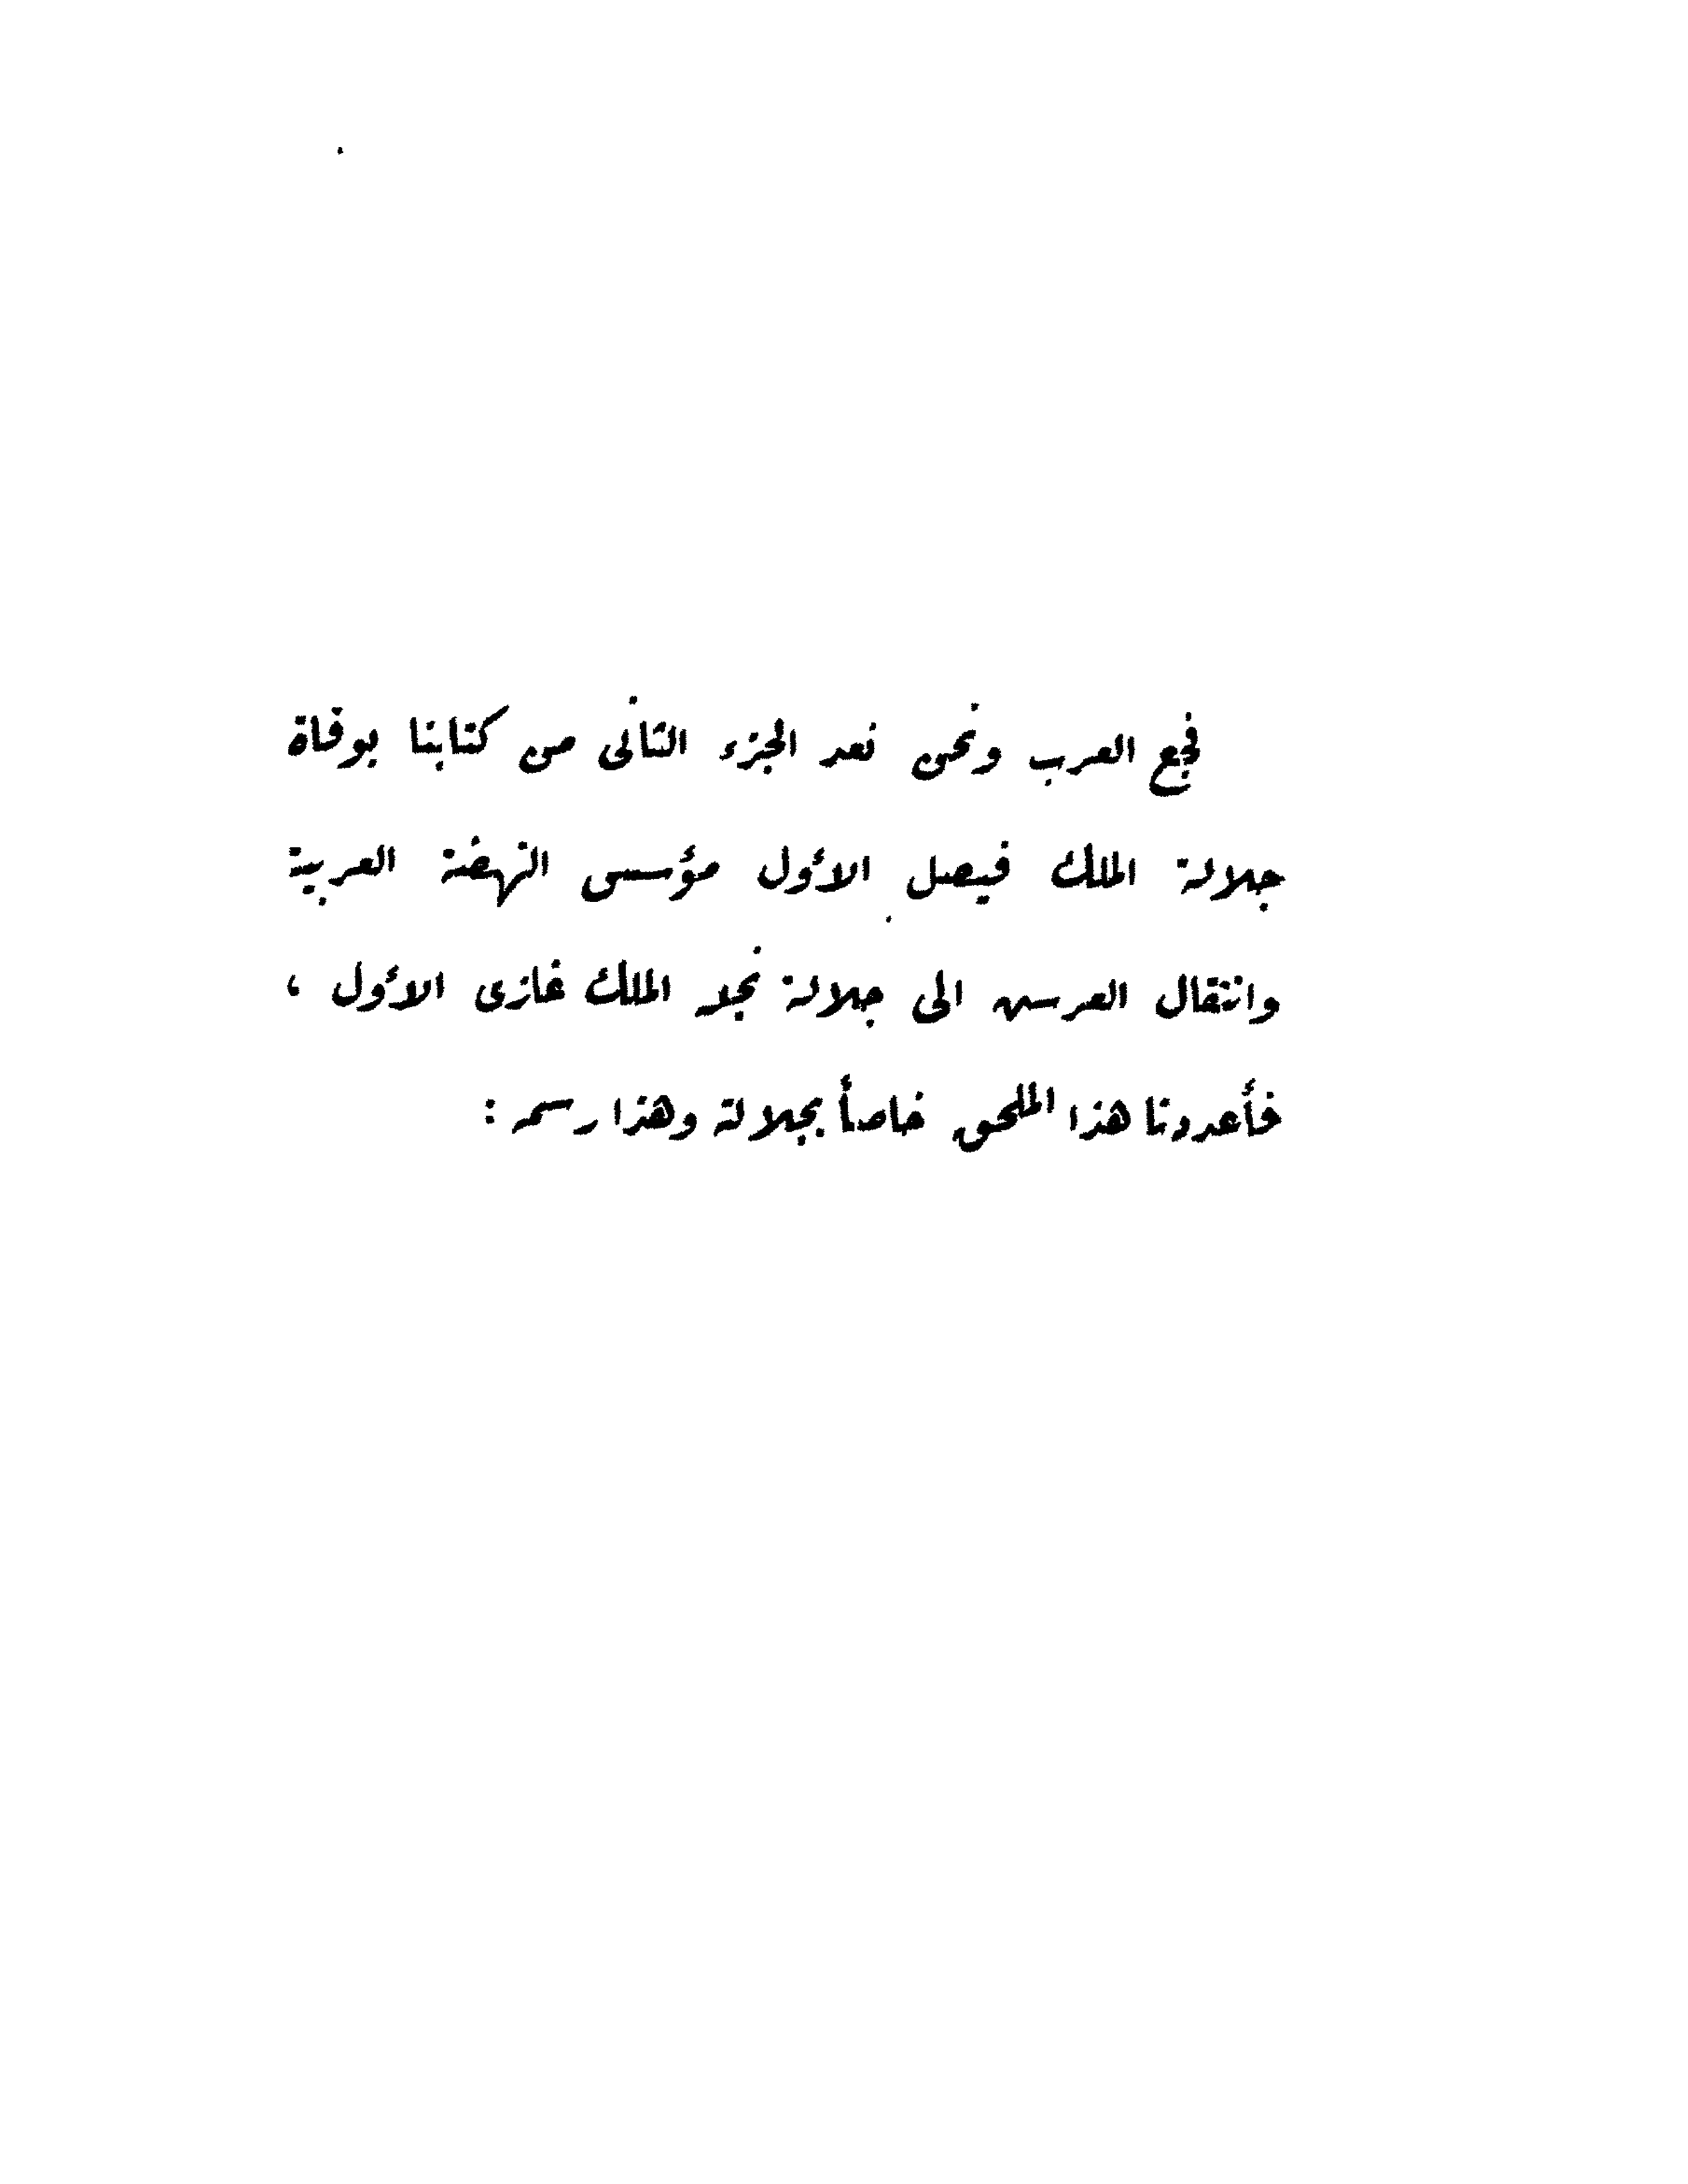 فجع العرب ونحن نعد الجزء الثانى من كتابنا بوفاة
جلالة الملك فيصل الاؤل مؤسس النهضة العربية
وانتقال العرسه الى جلالة نجله الملك غازى الاؤل ،
فأعددنا هذا الملحق خاصاً بجلالته وهذا رسمه :